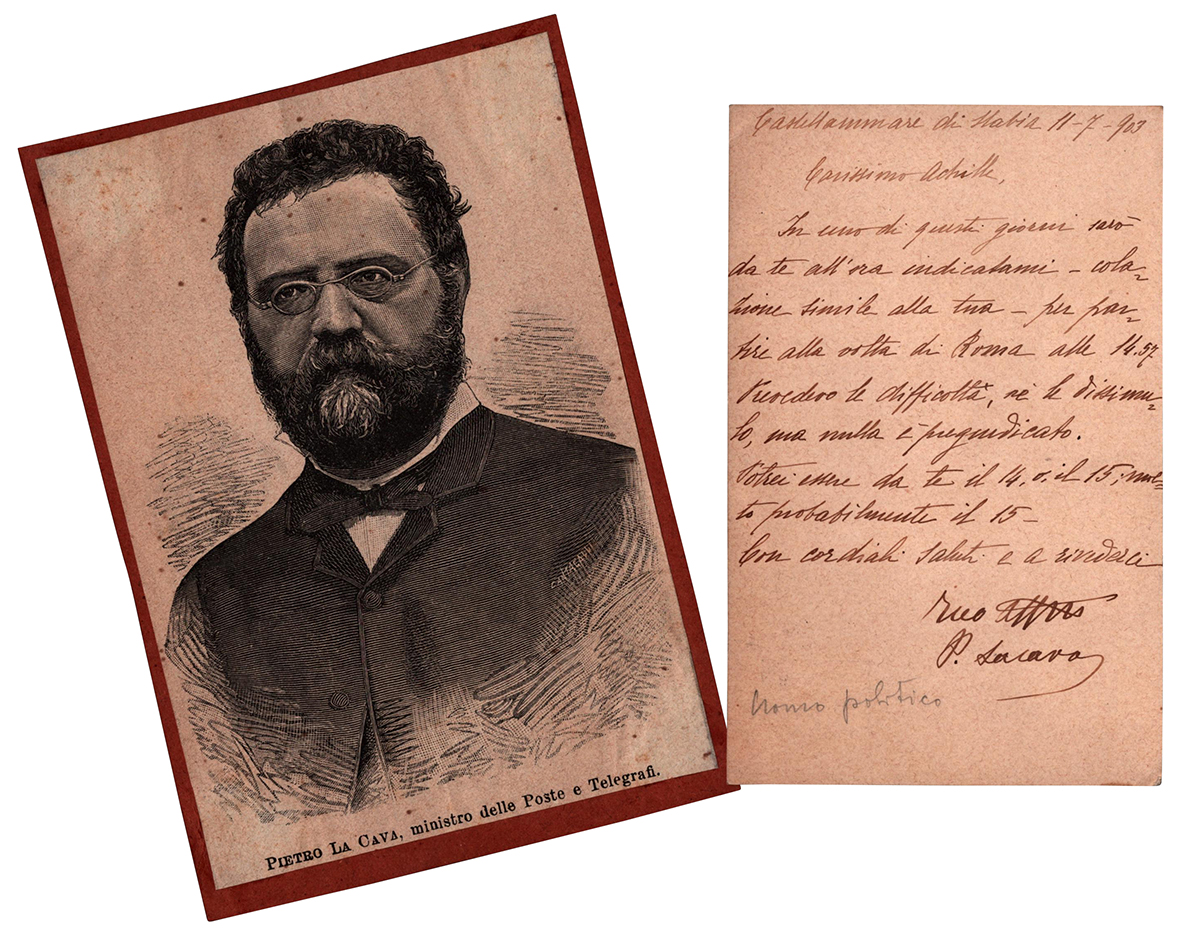 PIETRO LA CAVA, ministro delle Poste e Telegrafi.
Castellammare di Stabia 11-7-903
Carissimo Achille,
In uno di questi giorni sarò
da te all'ora indicatami - cola=
zione simile alla tua - per par=
tire alla volta di Roma alle 14.57
Prevedevo le difficoltà, nè le dissimu=
lo, ma nulla è pregiudicato.
Potrei essere da te il 14, o, il 15; mol=
to probabilmente il 15-
Con cordiali saluti e a rivederci
tuo affmo
P. Lacava
Uomo politico